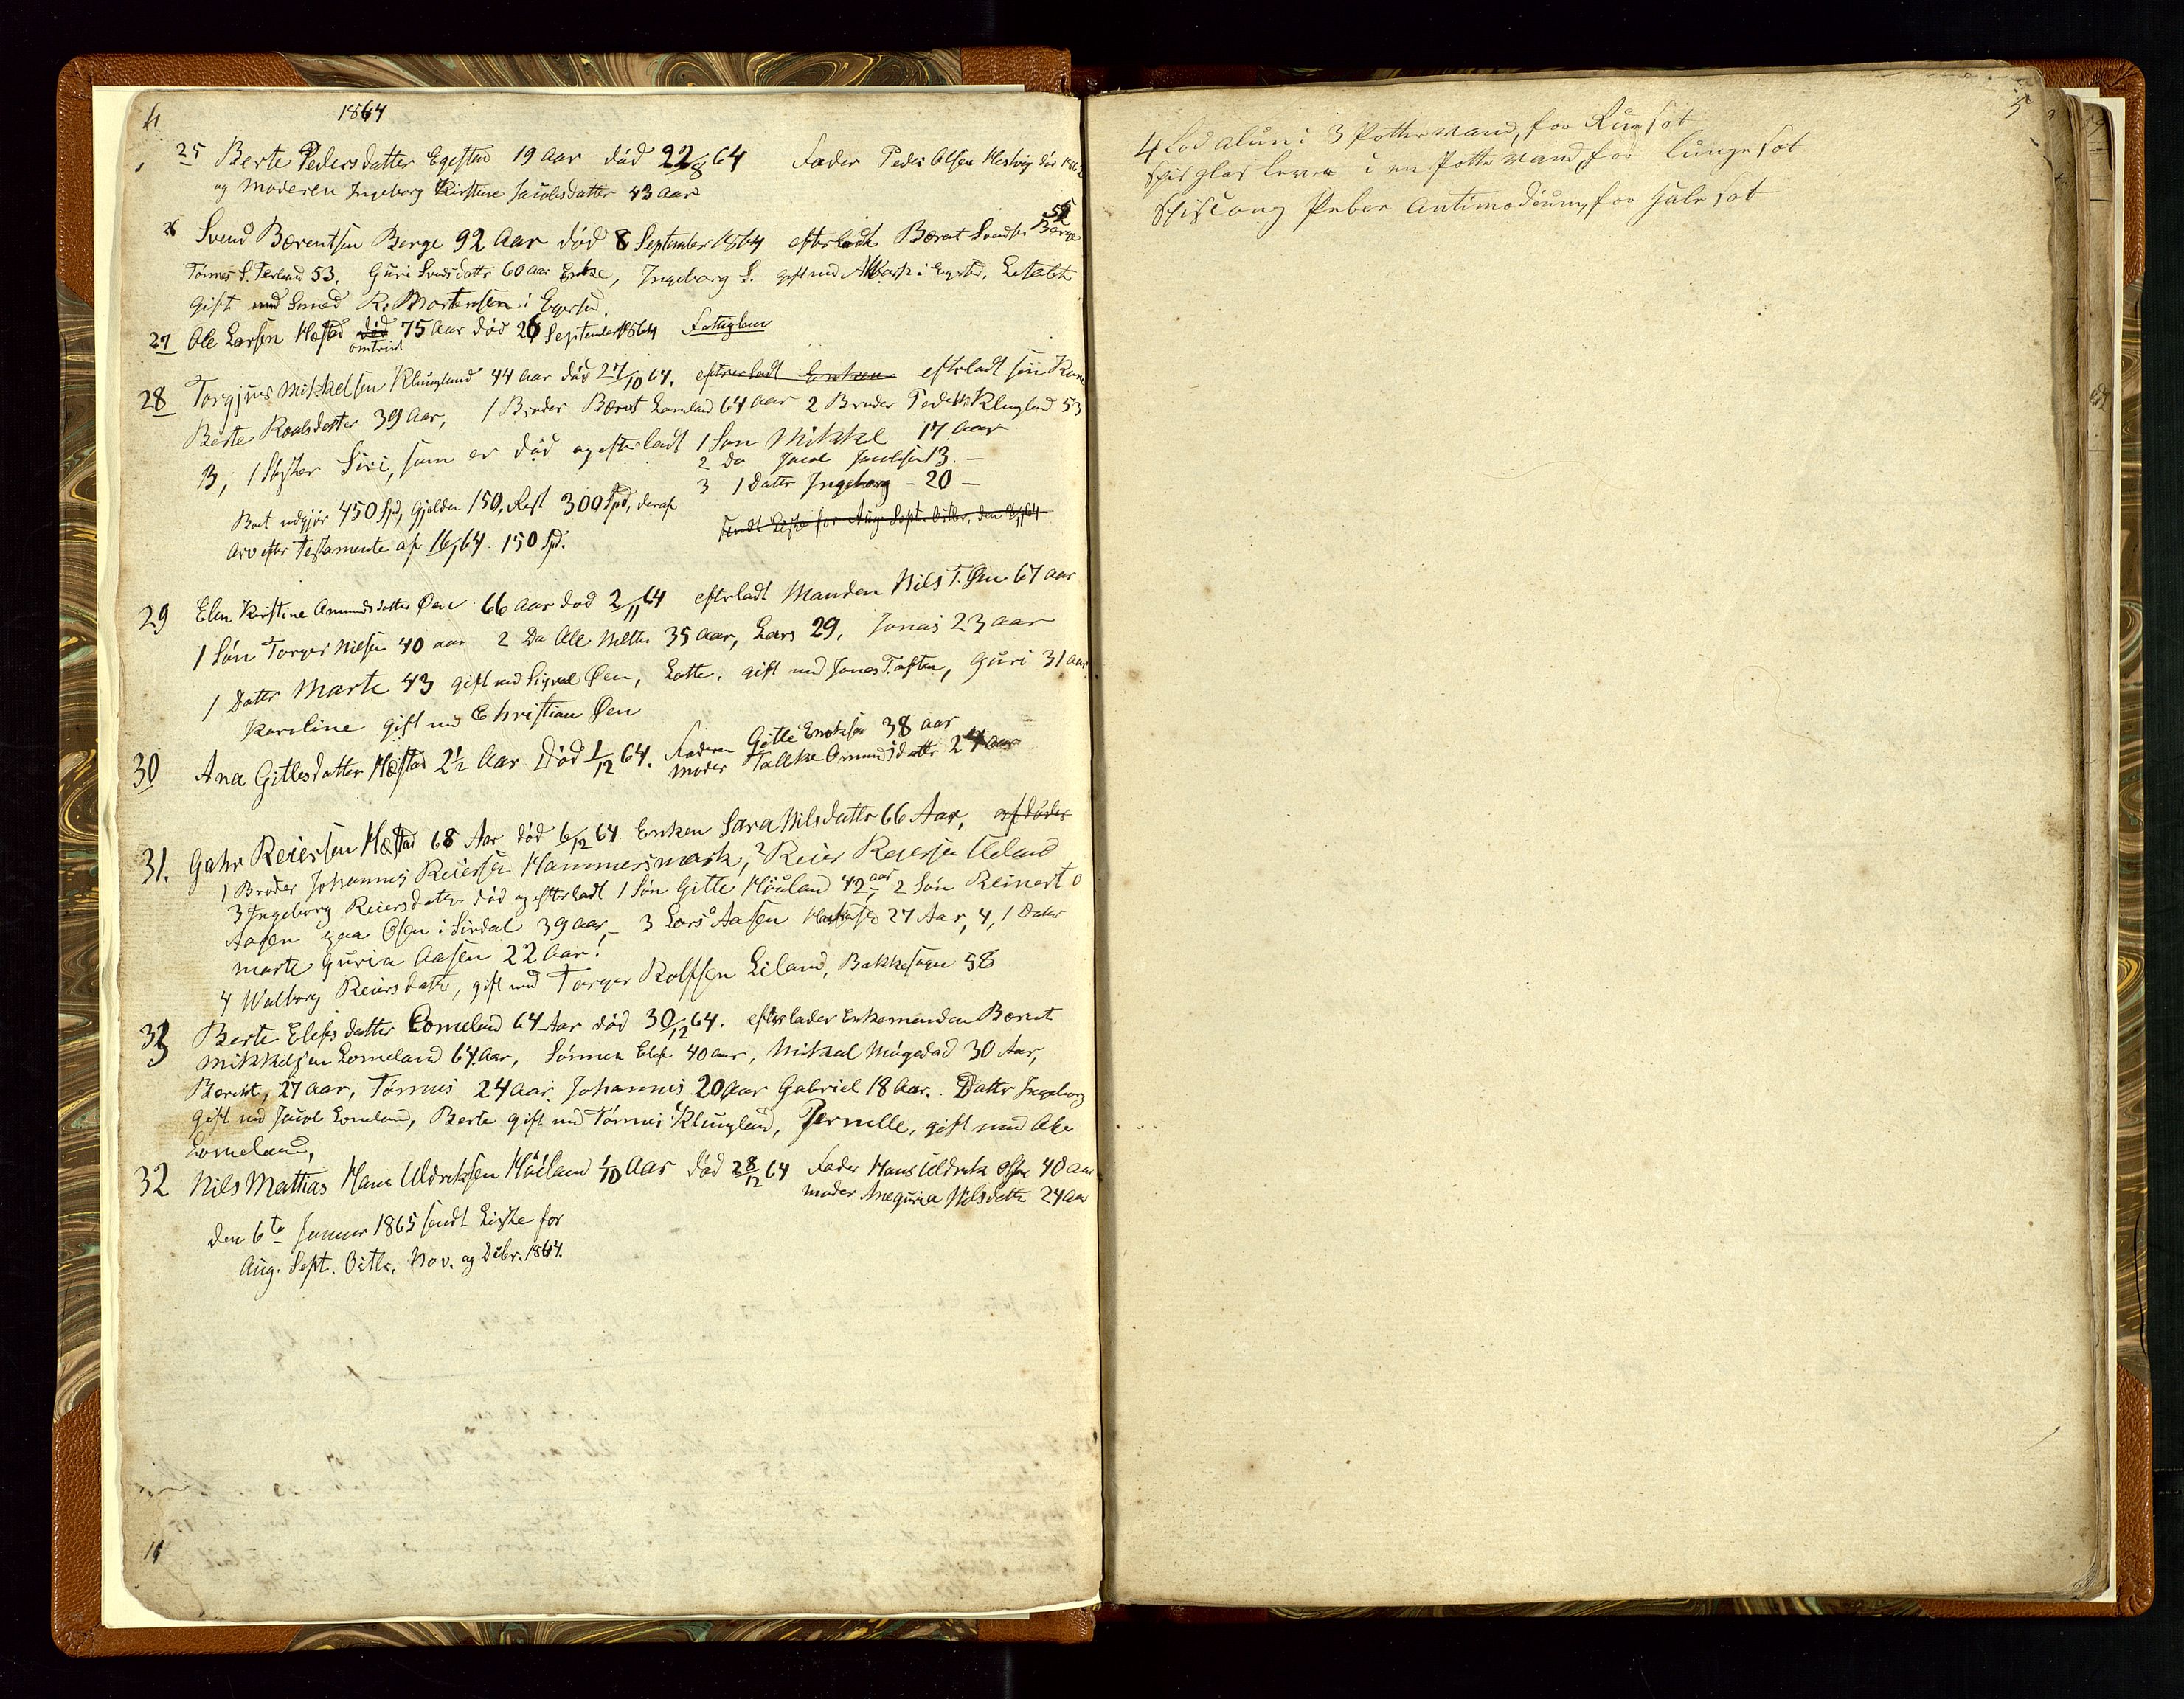 1864
25 Berte Pedersdatter Egestad 19 Aar död 22/8 64 Fader Peder Olsen Hestvig
og Moderen Ingeborg Kirstine Jacobsdatter 43 Aar
26 Svend Bærentsen Berge 92 Aar död 8 September 1864 efterladt Bærent Svendsen Berge 52
Tönnes S. Terland 53, Guri Svensdatter 60 aar Enke, Ingeborg S. gift med i Egers.
gift med Smed R. Mortensen i Egersud.
27 Ole Larsen Hæstad död omtrent 75 Aar död 26 September 1864 Fattiglem
28 Torgjus Mikkelsen Klungland 44 aar död 27/10 64. efterladt Enken efterladt sin Kone
Berte Roalsdatter 39 Aar, 1 Broder Bærent Lomland 64 aar 2 Broder Peder M. Klungland 53
3, 1 Söster Siri, som er död og efterladt 1 Sön Mikkel 17 aar
2 Do Jacob Jacobsen 13 -
3 1 Datter Ingeborg - 20 -
Boet udgjör 450 Spd, Gjelden 150, Rest 300 Spd, deraf
Arv efter Testamente af 16/5 64. 150 Spd.
sendt Liste for Aug. Sept. Octbr. den
29 Elen Kirstine Amundsdatter Øen 66 aar död 2/11 64 efterladt Manden Nils T. Øen 67 aar
1 Sön Torger Nilsen 40 aar 2 Do Ole Nilsen 35 Aar, Lars 29, Jonas 23 aar
1 Datter Marte 43 gift med Sigval Øen, Lotte, gift med Jones Toften, Guri 31 aar
Karoline gift med Christian Øen
30 Ana Gitlesdatter Hæstad 2½ Aar Död 1/12 64. Faderen Gitle Enoksen 38 aar
Moder Tallke Omundsdatter 24 aar
31. Gahr Reiersen Hæstad 68 Aar död 6/12 64 Enken Sara Nilsdatter 66 Aar, afdöde
1 Broder Johannes Reiersen Hammersmark, 2 Reier Reiersen Ueland
3 Ingeborg Reiersdatter död og efterladt 1 Sön Gitle Höuland 42 aar, 2 Sön Reinert O
Aasen paa Osen i Sirdal 39 aar, - 3 Lars Aasen 27 Aar, 4, 1 Datter
Marte Guria Aasen 22 Aar!
4 Wolborg Reiersdatter, gift med Torger Rolfsen Eiland, Bakkesogn 58
33 Berte Elefsdatter Lomeland 64 Aar död 30/12 64. efterlader Enkemanden Bærent
Mikkelsen Lomeland 64 Aar, Sönnen Elef 40 aar, Mikael Mögedad 30 Aar,
Bærent, 27 Aar, Tönnes 24 Aar. Johannes 20 Aar Gabriel 18 Aar. Datter Ingeborg
gift med Jacob Lomeland, Berte gift med Tönnes Klungland, Pernille, gift med Ole
Lomeland,
32 Nils Mattias Hans Uldriksen Höiland 1/10 Aar död 28/12 64 Fader Hans Uldrik Olsen 40 aar
moder Aneguria Nilsdatter 24 aar
den 6te Januar 1865 sendt Liste for
Aug. Sept. Octbr. Nov. og Debr. 1864.
5
4 Lod alun i 3 Potter vand, for Rugsot
Spisglas Lever i en Potte Vand, for Lungesot
Peber Antimodium, for Halssot